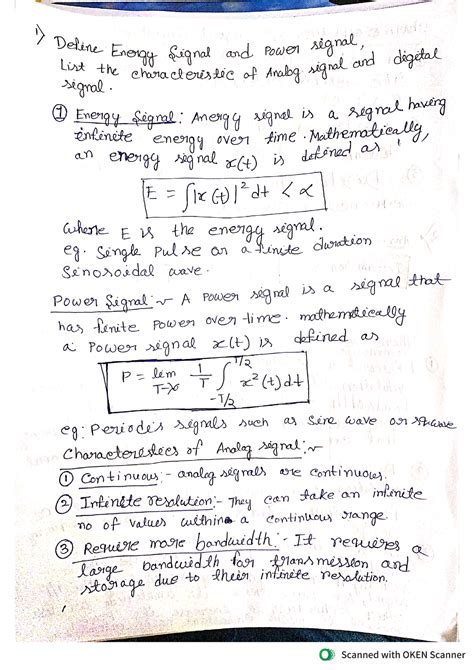 1) Define Energy Signal and Power signal,
List the characteristic of Analog signal and digital
signal.
① Energy Signal: Anergy signal is a signal having
infinite energy over time. Mathematically,
an energy signal x(t) is defined as
E = ∫|x(t)|² dt < ∝
where E is the energy signal.
eg. Single Pulse or a finite duration
Sinosoidal wave.
Power Signal:~ A Power signal is a signal that
has finite Power over time. mathematically
a Power signal x(t) is defined as
P = lim T→∞ 1/T ∫ -T/2 T/2 x²(t) dt
eg: Periodis signals such as Sine wave or square
Characteristics of Analog signal:~
① Continuous:- analog signals are continuous.
② Infinite resolution:- They can take an infinite
no of values within a continuous range
③ Require more bandwidth:- It requires a
large bandwidth for transmission and
storage due to their infinite resolution.
Scanned with OKEN Scanner